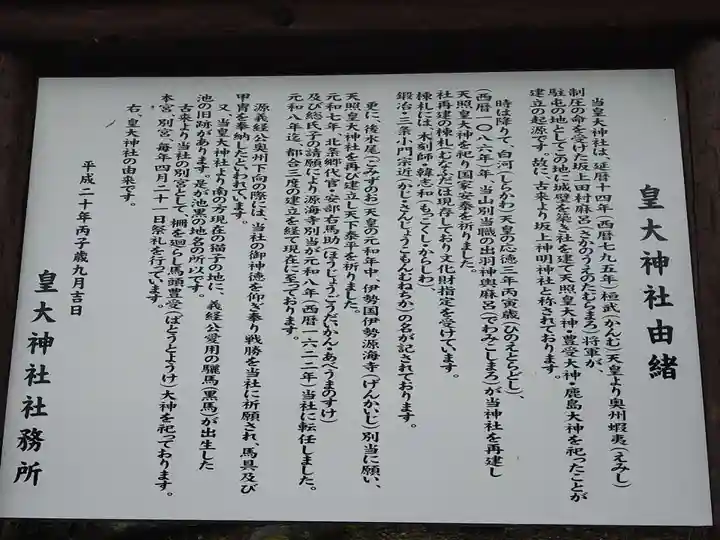 皇大神社由緒
当皇大神社は、延暦十四年(西暦七九五年)桓武(かんむ)天皇より奥州蝦夷(えみし)
制圧の命を受けた坂上田村麻呂(さかのうえのたむらまろ)将軍が
駐屯の地としてこの地に城壁を築き社を建て天照皇大神・豊受大神・鹿島大神を祀ったことが
建立の起源です。故に、古来より坂上神明神社と称されております。
時は降りて、白河(しらかわ)天皇の応徳三年丙寅歳(ひのえとらどし)、
(西暦一〇八六年)年、当山別当職の出羽神興麻呂(でわみこしまろ)が当神社を再建し
天照皇大神を祀り国家安泰を祈りました。
社再建の棟札(むなふだ)は現存しており文化財指定を受けています。
棟札には、木刻師・韓志和(もっこくし・からしわ)、
鍛冶・三条小門宗近(かじ・さんじょうこもんむねちか)の名が記されております。
更に、後水尾(ごみずのお)天皇の元和年中、伊勢国伊勢源海寺(げんかいじ)別当に願い、
天照皇大神社を再び建立し天下泰平を祈りました。
元和七年、北条郷代官・安部右馬助(ほうじょうごうだいかん・あべうまのすけ)
及び総氏子の請願により源海寺別当が元和八年(西暦一六二二年)当社に転任しました。
元和八年迄、都合三度の建立を経て現在に至っております。
源義経公奥州下向の際には、当社の御神徳を仰ぎ奉り戦勝を当社に祈願され、馬具及び
甲冑を奉納したといわれています。
又、当皇大神社より南の方現在の猫子の地に、義経公愛用の驪馬(黒馬)が出生した
池の旧跡があります。是が池黒の地名の所以です。
古来より当社の別宮として、柵を廻らし馬頭豊受(ばとうとようけ)大神を祀っております。
本宮・別宮、毎年四月二十一日祭礼を行っています。
右、皇大神社の由来です。
平成二十年丙子歳九月吉日
皇大神社社務所